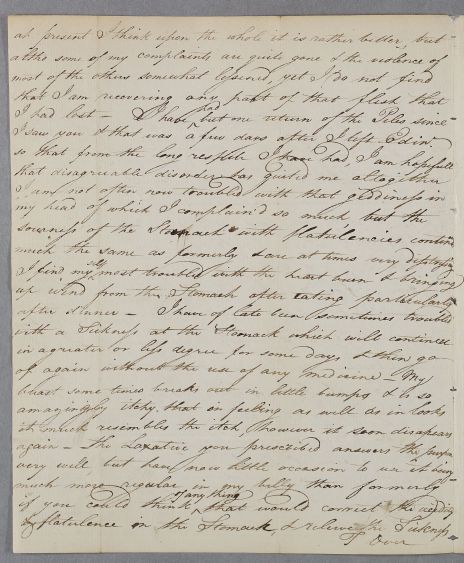 at present I think upon the whole it is rather better, but
altho some of my complaints are quite gone & the violence of
most of the others somewhat lessened, yet I do not find
that I am recovering any part of that flesh that
I had lost – I have had but one return of the Piles since
I saw you & that was a few days after I left Edinr
so that from the long respite I have had I am hopefull
that disagreable disorder has quited me altogether
I am not often now troubled with that giddiness in
my head of which I complain'd so much but the
sourness of the Stomach with flatulencies continue
much the same as formerly & are at times very
I find my self most troubled with the heart burn & bringing
up wind from the Stomach after eating particularly
after dinner – I have of late been sometimes troubled
with a Sickness at the Stomack which will continue
in a greater or less degree for some days & then go
off again without the use of any medicine – My
breast some times breaks out in little bumps & is so
amazingly itchy, that in feeling as well as in looks
it much resembles the itch, however it soon disapears
again – the Laxative you prescribed answers the purpose
very well, but have now little occasion to use it being
much more regular in my belly than formerly
if you could think of any thing that would correct the acidity
& flatulence on the Stomack, & relieve the Sickness
Over